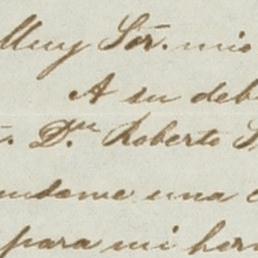 Muy Sor. mio
A su deb
. Dn. Roberto S
ndome una
para mi her